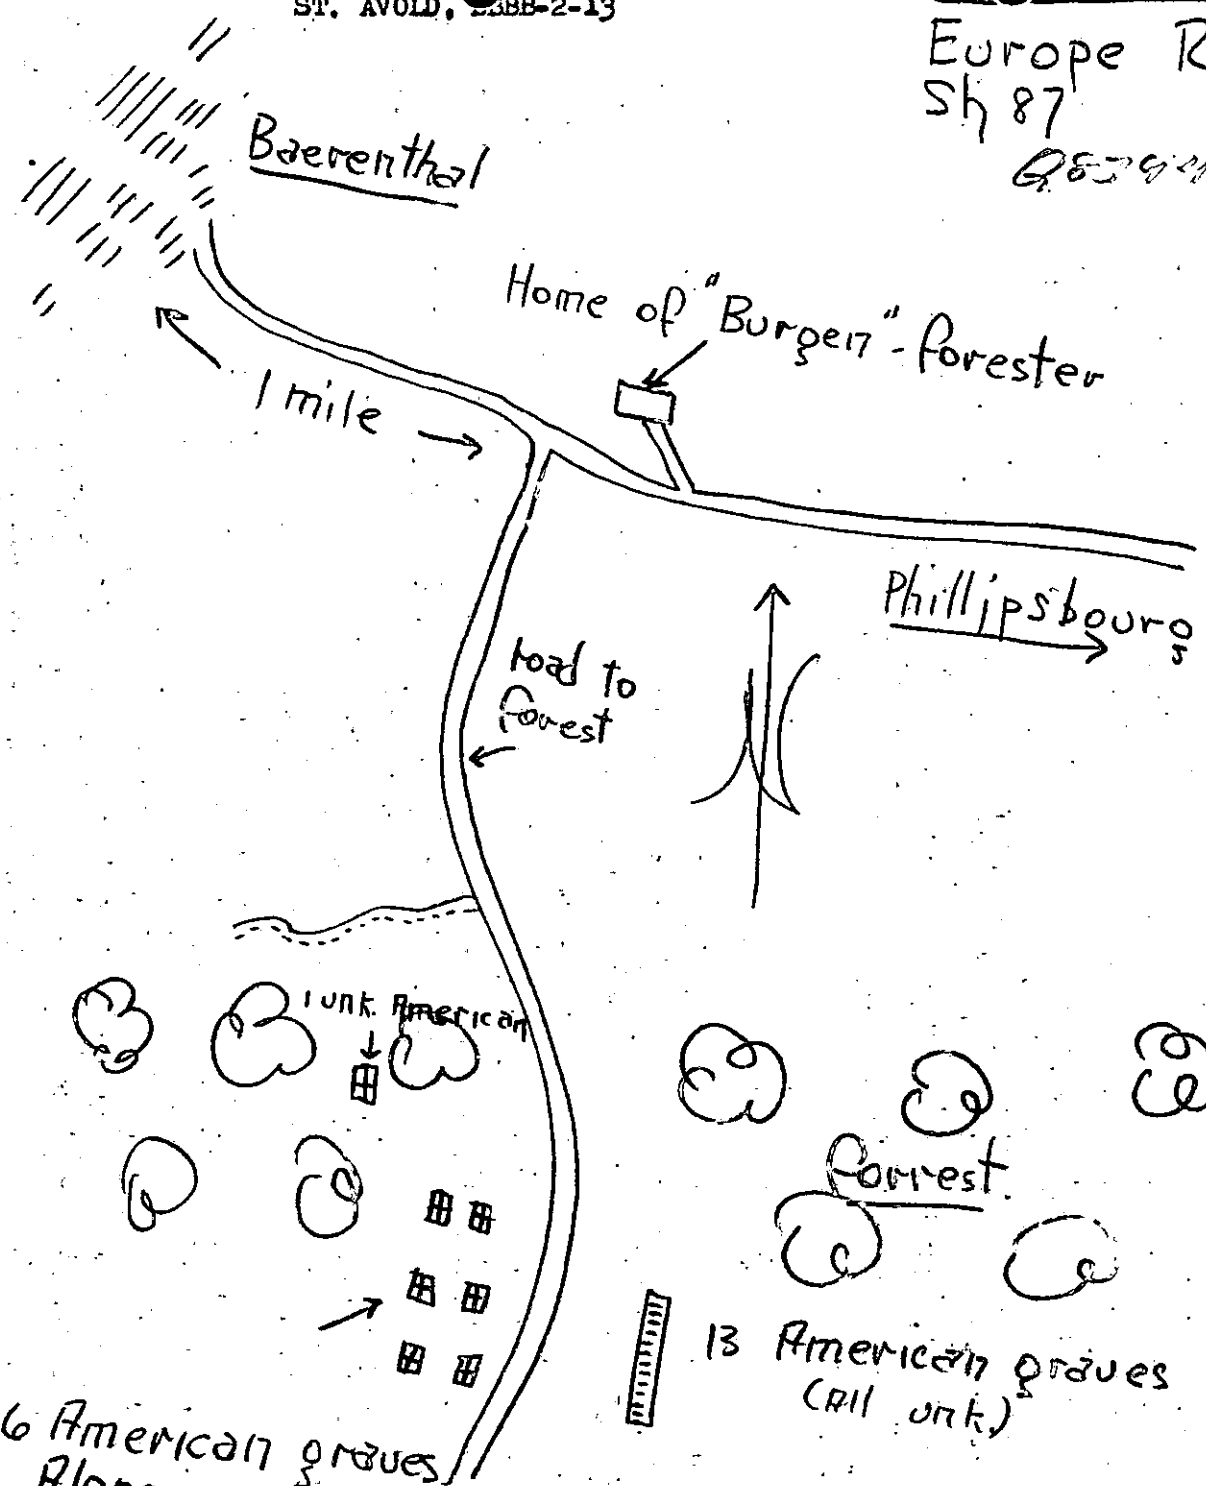 ST. AVOLD,
Europe
Sh 87
Baerenthal
Home of "Burgen"-forester
1 mile
Phillipsbourg
road to
forest
1 unk. American
forrest
13 American graves
(All unk.)
6 American graves